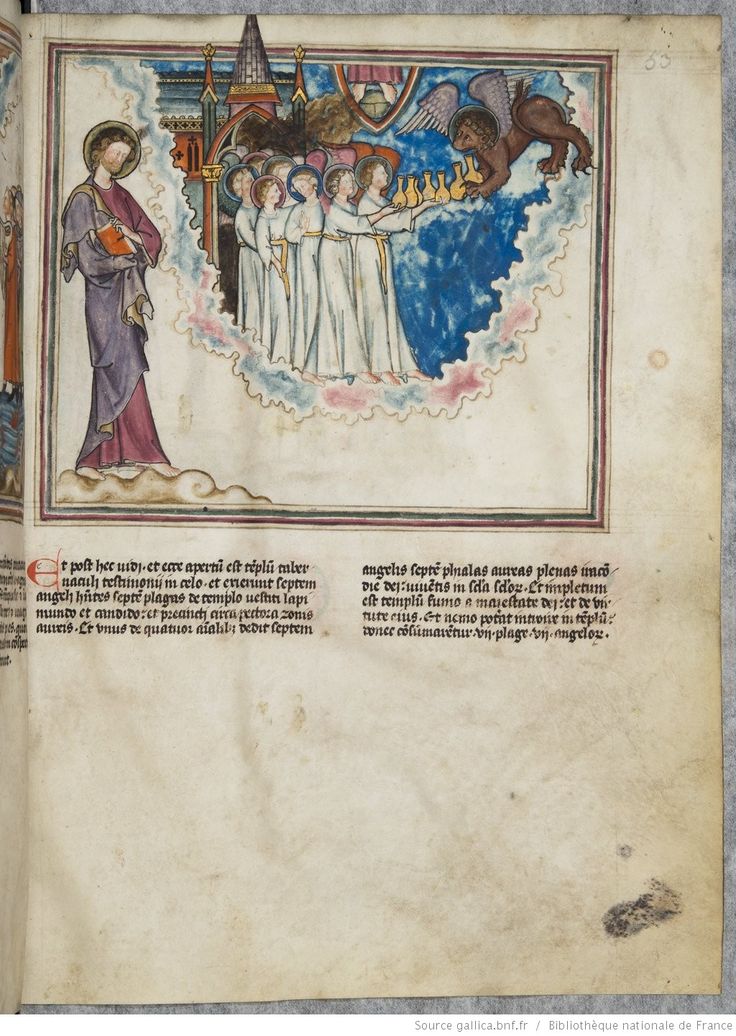 53
Et post hec uidi. et ecce apertũ est tẽplũ taber
naculi testimonij in celo. et exierunt septem
angeli hñtes septẽ plagas de templo uestiti lapi
mundo et candido: et precincti circa pectora zonis
aureis. Et unus de quatuor aĩalib; dedit septem
angelis septẽ phialas aureas plenas iracũ
die dei: uiuentis in scła scłoꝝ. Et impletum
est templũ fumo a maiestate dei: et de uir
tute eius. Et nemo potãt introire in tẽplũ:
donec cõsũmarẽtur .vii. plage .vii. angeloꝝ.
Source gallica.bnf.fr / Bibliothèque nationale de France